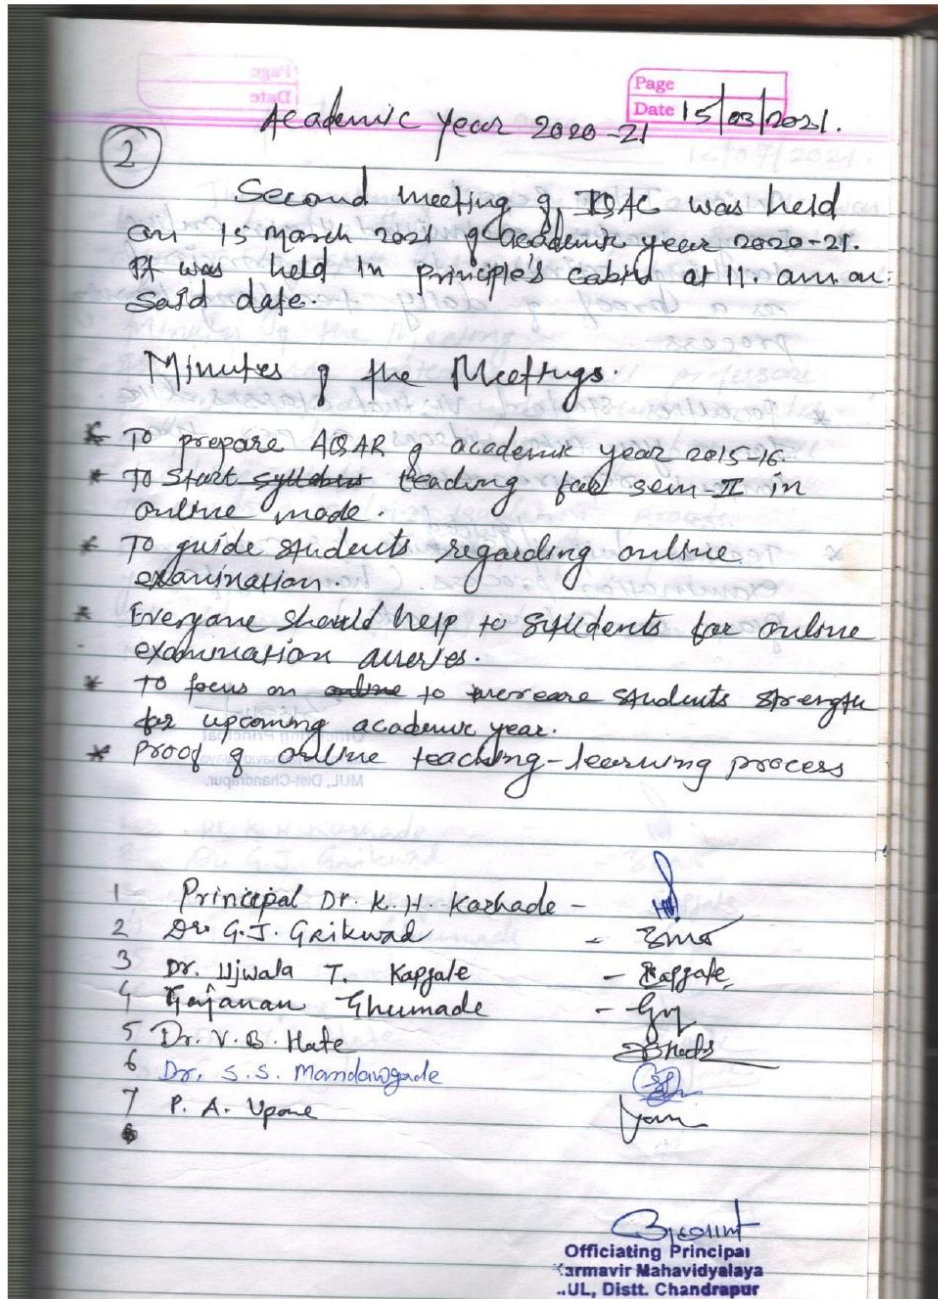 Page
Date 15/03/2021.
Academic Year 2020-21
2
Second meeting of IQAC was held
on 15 March 2021 of academic year 2020-21.
It was held in principle's cabin at 11. am. on
said date.
Minutes of the Meetings.
* To prepare AQAR of academic year 2015-16.
* To Start syllabus teaching for sem-II in
online mode.
* To guide students regarding online
examination
* Everyone should help to students for online
examination queries.
* To focus on online to increare students strength
for upcoming academic year.
* Proof of online teaching-learning process
1 Principal Dr. K. H. Karhade -
2 Dr. G.J. Gaikwad -
3 Dr. Ujwala T. Kapgate - Kapgate
4 Gajanan Ghumade -
5 Dr. V. B. Hate
6 Dr. S.S. Mandawgade
7 P. A. Upare
8
Officiating Principal
Karmavir Mahavidyalaya
MUL, Distt. Chandrapur